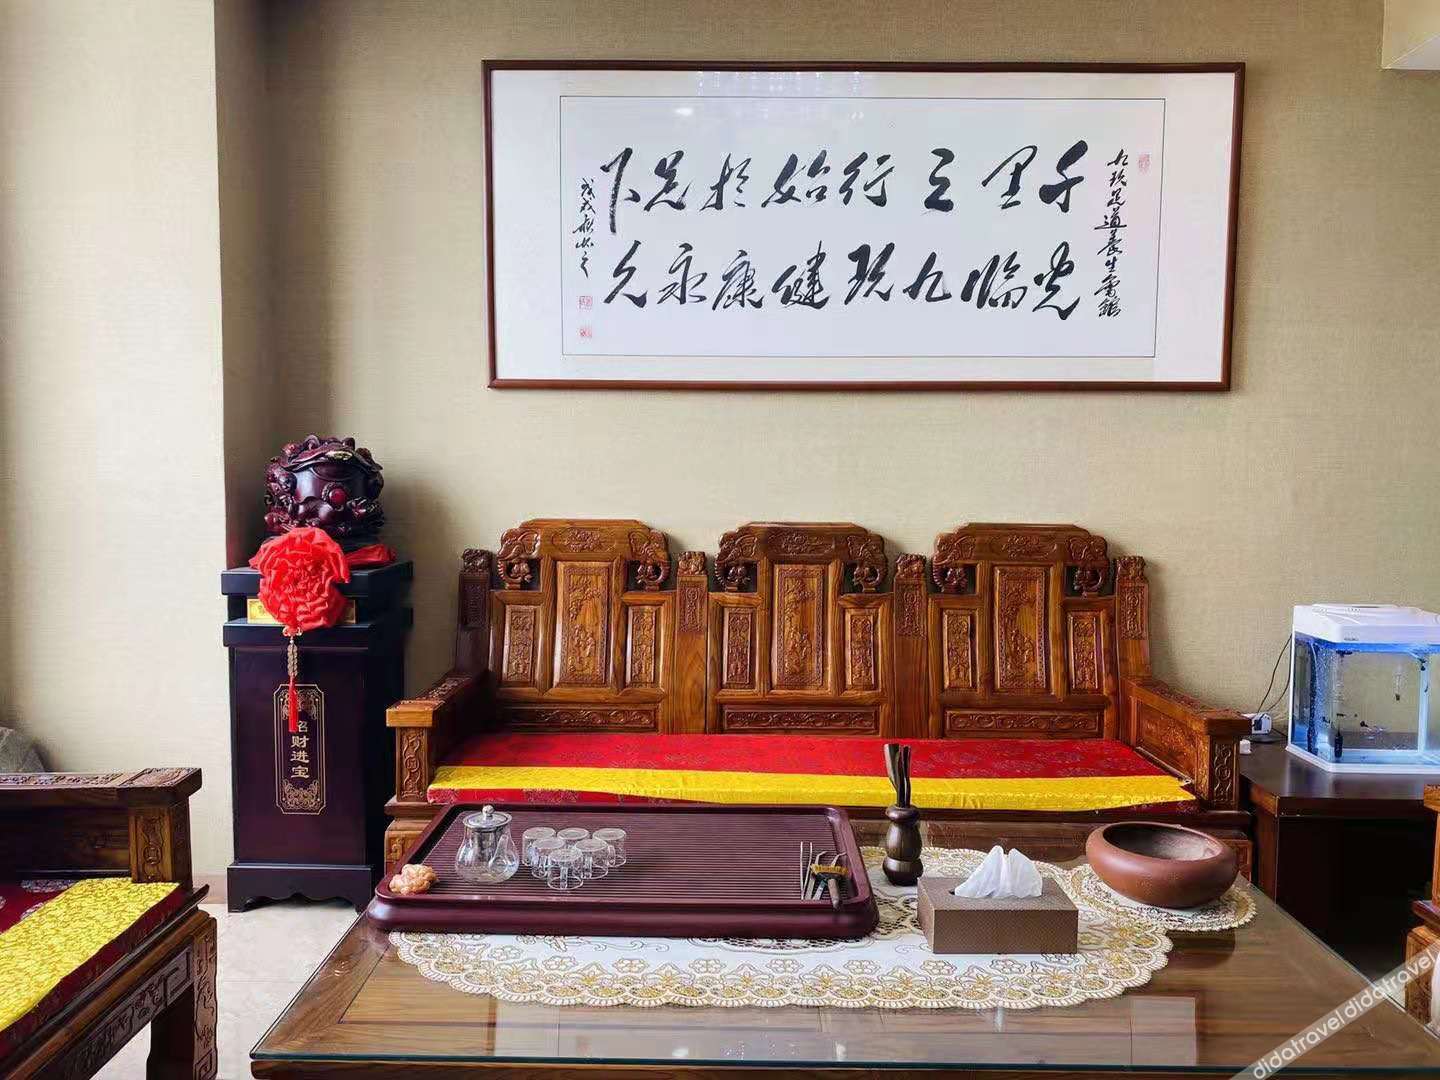 九玖足道養生會館
千里之行始於足下
光臨九玖健康永久
戊戌秋
招财进宝
didatravel didatravel